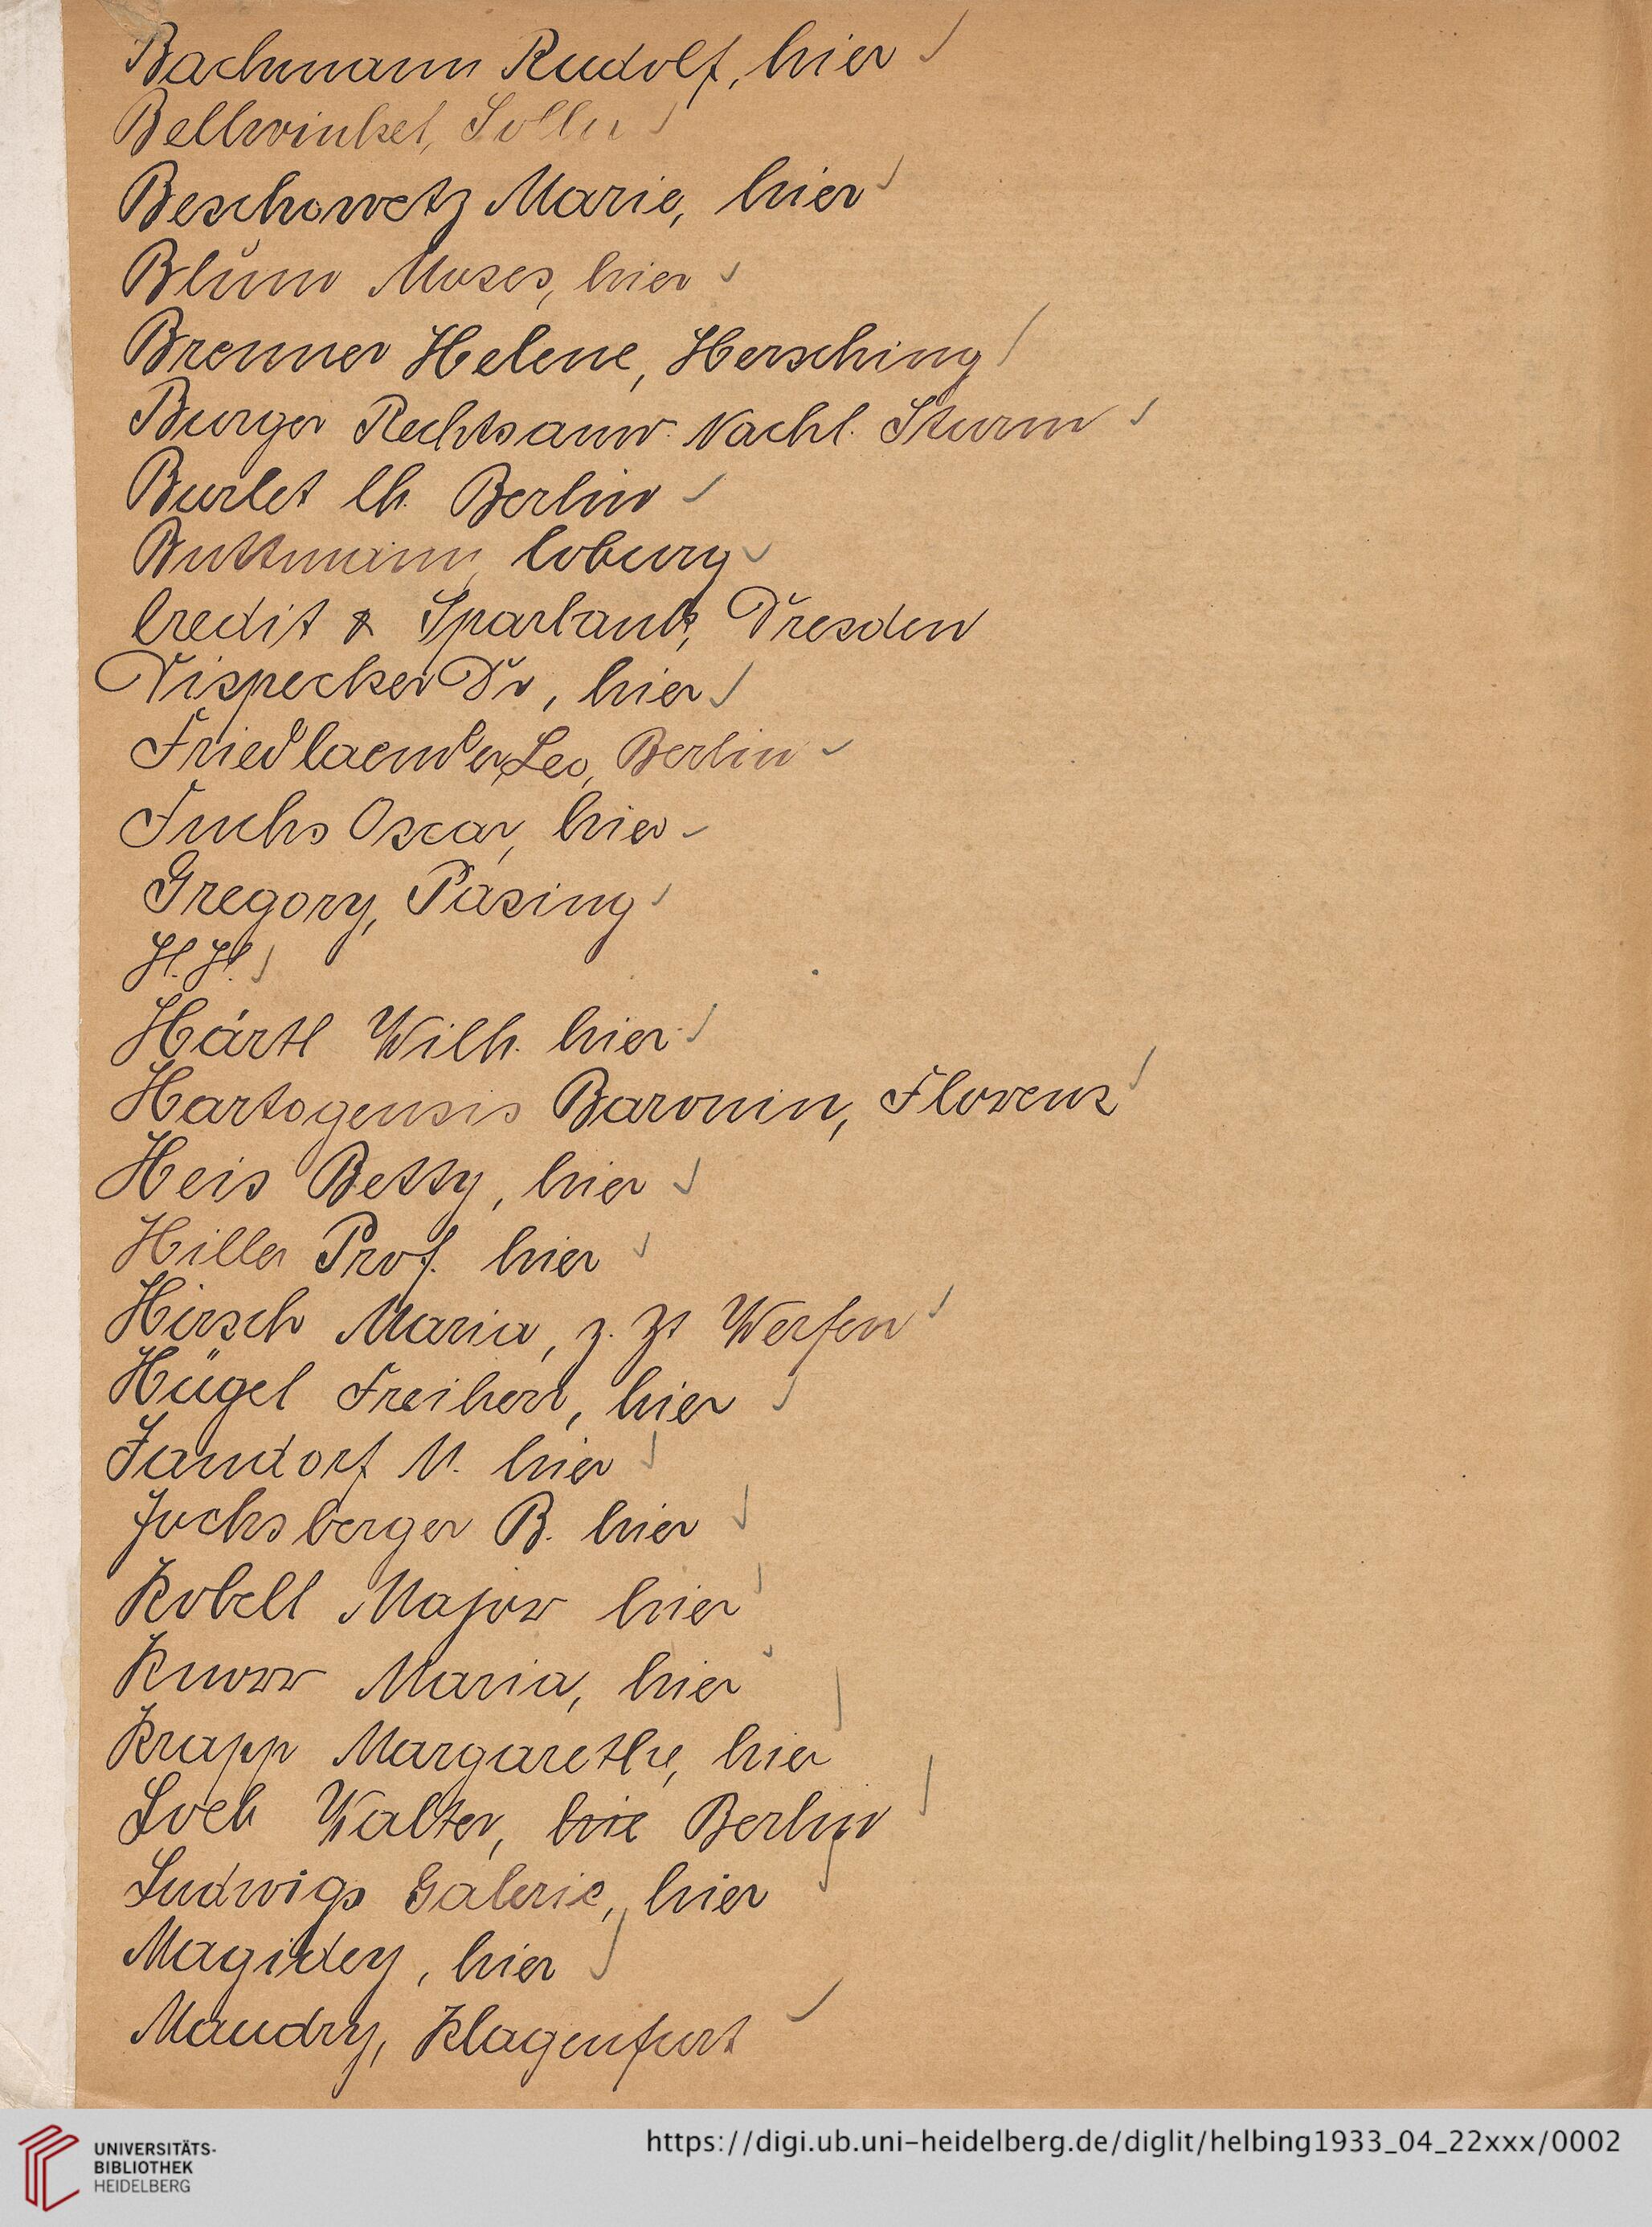 Bachmann Rudolf, hier
Bellwinkel, Solln
Beschowetz Marie, hier
Blum Moses, hier
Brenner Helene, Hersching
Burger Rechtsanw. Nachl. Sturm
Burlet Ch. Berlin
Buttmann, Coburg
Credit & Sparbank, Dresden
Dispecker Dr, hier
Friedlaender Leo, Berlin
Fuchs Oscar, hier
Gregory, Pasing
H. H.
Härtl Wilh. hier
Hartogensis Baronin, Florenz
Heis Betty, hier
Hiller Prof. hier
Hirsch Maria, z. Zt Werfen
Hügel Freiherr, hier
Jandorf M. hier
Jochsberger B. hier
Kobell Major hier
Knorr Maria, hier
Krapp Margarethe, hier
Loeb Walter, hie Berlin
Ludwigs Galerie, hier
Magidey, hier
Maudry, Klagenfurt
UNIVERSITÄTS-
BIBLIOTHEK
HEIDELBERG
https://digi.ub.uni-heidelberg.de/diglit/helbing1933_04_22xxx/0002